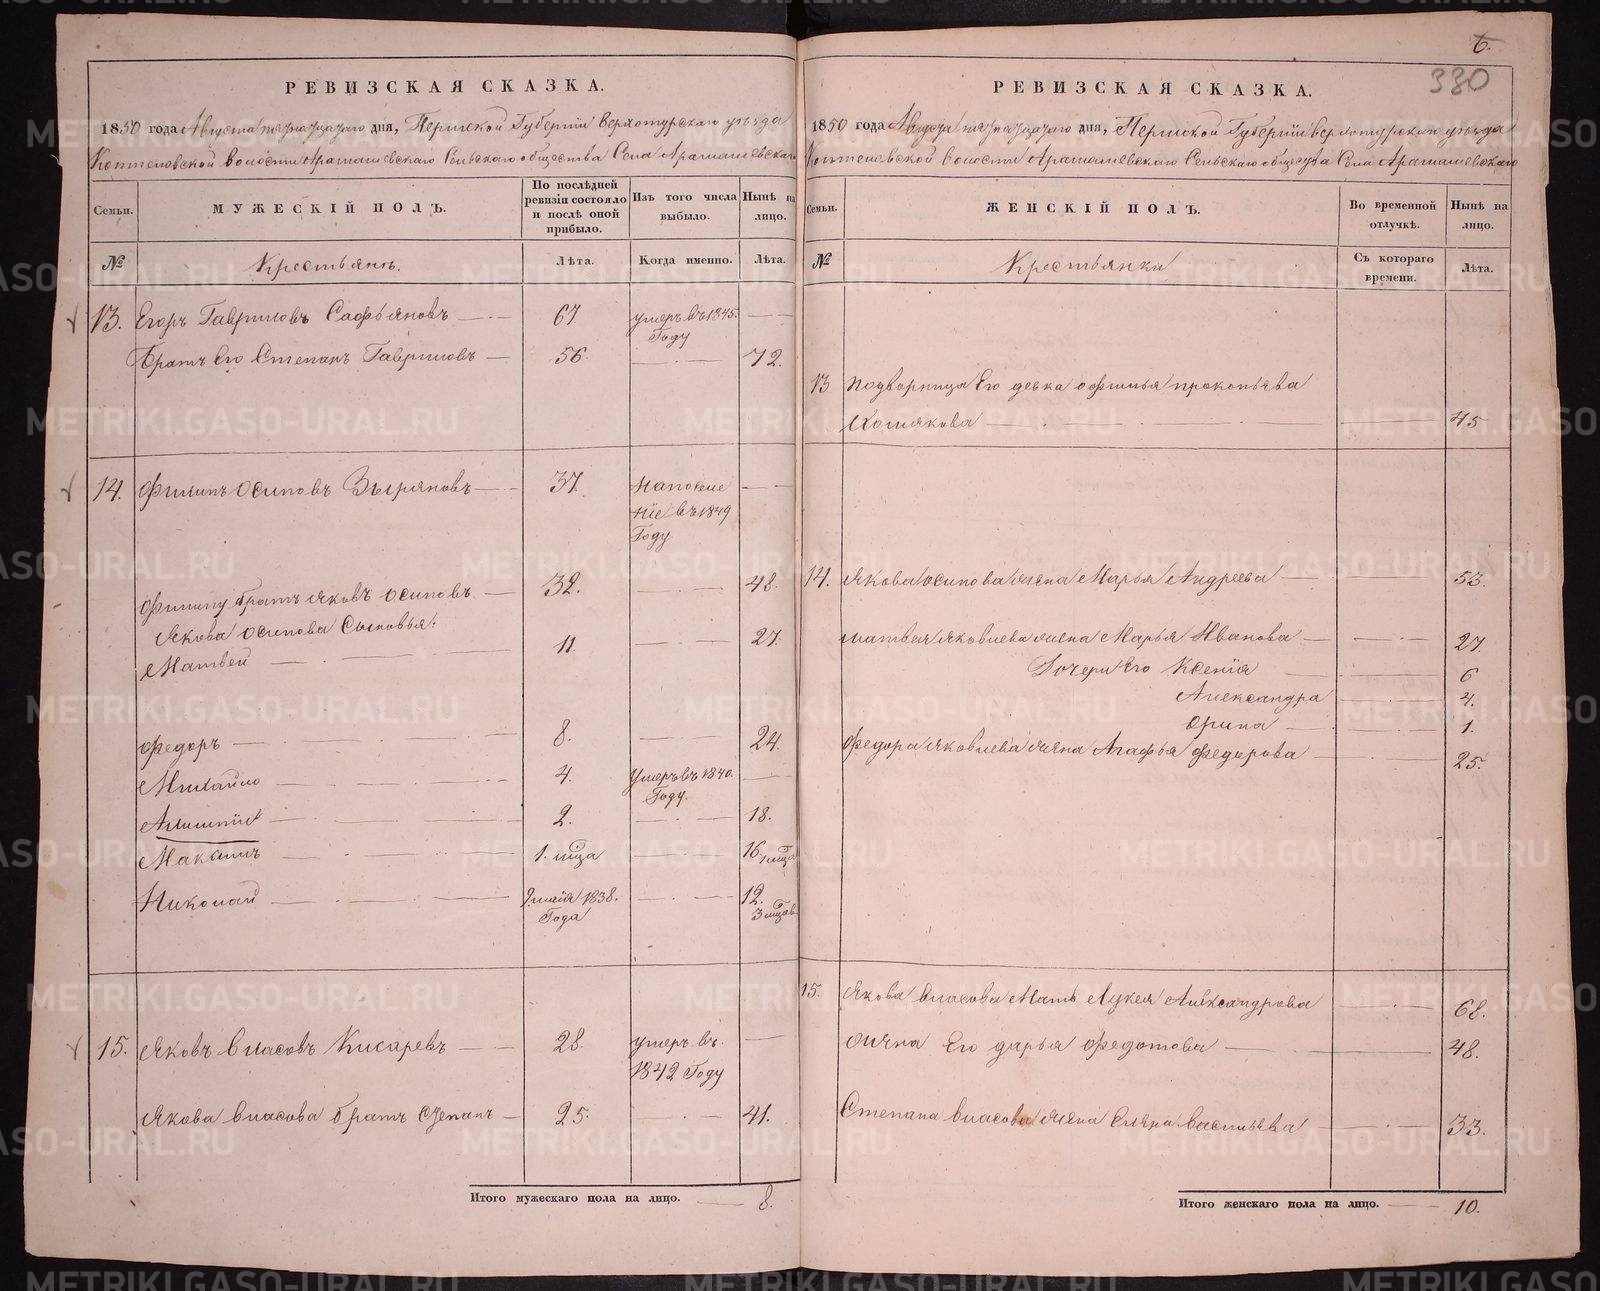 6.
330
РЕВИЗСКАЯ СКАЗКА.
1850 года Августа пятнадцатаго дня, Пермской Губернии Верхотурскаго уѣзда
Коптеловской волости Арамашевскаго Сельскаго общества Села Арамашевскаго
Семьи. МУЖЕСКІЙ ПОЛЪ. По послѣдней ревизіи состояло и послѣ оной прибыло. Изъ того числа выбыло. Нынѣ на лицо.
№ Крестьянъ. Лѣта. Когда именно. Лѣта.
13. Егоръ Гавриловъ Сафьяновъ 67 умеръ въ 1845. Году
Братъ Его Степанъ Гавриловъ 56. 72.
14. Филипъ Осиповъ Зыряновъ 37. На поселение въ 1849 Году
Филипу братъ Яковъ Осиповъ 32. 48.
Якова Осипова Сыновья:
Матвей 11 27.
Федоръ 8. 24.
Михайло 4. Умеръ въ 1840. Году.
2. 18.
Максимъ 1. мца 16 1 мца
Николай 9 мая 1838. Года 12. 3 мцов
15. Яковъ Власовъ Кисаревъ 28. умеръ въ 1842 Году
Якова Власова братъ Степанъ 25. 41.
Итого мужескаго пола на лицо. 8.
РЕВИЗСКАЯ СКАЗКА.
1850 года Августа пятнадцатаго дня, Пермской Губернии Верхотурскаго уѣзда
Коптеловской волости Арамашевскаго Сельскаго общества Села Арамашевскаго
Семьи. ЖЕНСКІЙ ПОЛЪ. Во временной отлучкѣ. Нынѣ на лицо.
№ Крестьянки Съ котораго времени. Лѣта.
13 подворница Его девка Офимья прокопьева
45
14. Якова Осипова жена Марья Андреева 53.
матвея Яковлева жена Марья Иванова 27.
Дочери Его Ксения 6
Александра 4.
Орина 1.
Федора Яковлева жена Агафья Федорова 25.
15. Якова Власова Мать Лукея Александрова 68.
Жена Его дарья Федотова 48.
Степана Власова жена Елена Васильева 33.
Итого женскаго пола на лицо. 10.
METRIKI.GASO-URAL.RU